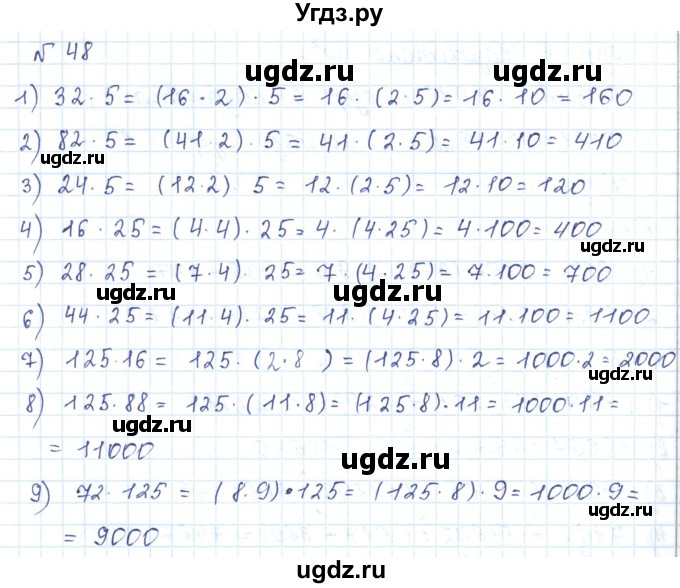 Угдз.ру
№ 48
ugdz.ru
ugdz.ru
1) 32 · 5 = (16 · 2) · 5 = 16 · (2 · 5) = 16 · 10 = 160
2) 82 · 5 = (41 · 2) · 5 = 41 · (2 · 5) = 41 · 10 = 410
ugdz.ru
ugdz.ru
3) 24 · 5 = (12 · 2) 5 = 12 · (2 · 5) = 12 · 10 = 120
4) 16 · 25 = (4 · 4) · 25 = 4 · (4 · 25) = 4 · 100 = 400
ugdz.ru
5) 28 · 25 = (7 · 4) · 25 = 7 · (4 · 25) = 7 · 100 = 700
ugdz.ru
ugdz.ru
6) 44 · 25 = (11 · 4) · 25 = 11 · (4 · 25) = 11 · 100 = 1100
ugdz.ru
7) 125 · 16 = 125 · (2 · 8 ) = (125 · 8) · 2 = 1000 · 2 = 2000
ugdz.ru
8) 125 · 88 = 125 · (11 · 8) = (125 · 8) · 11 = 1000 · 11 =
ugdz.ru
= 11000
ugdz.ru
9) 72 · 125 = (8 · 9) · 125 = (125 · 8) · 9 = 1000 · 9 =
= 9000
ugdz.ru
ugdz.ru
ugdz.ru